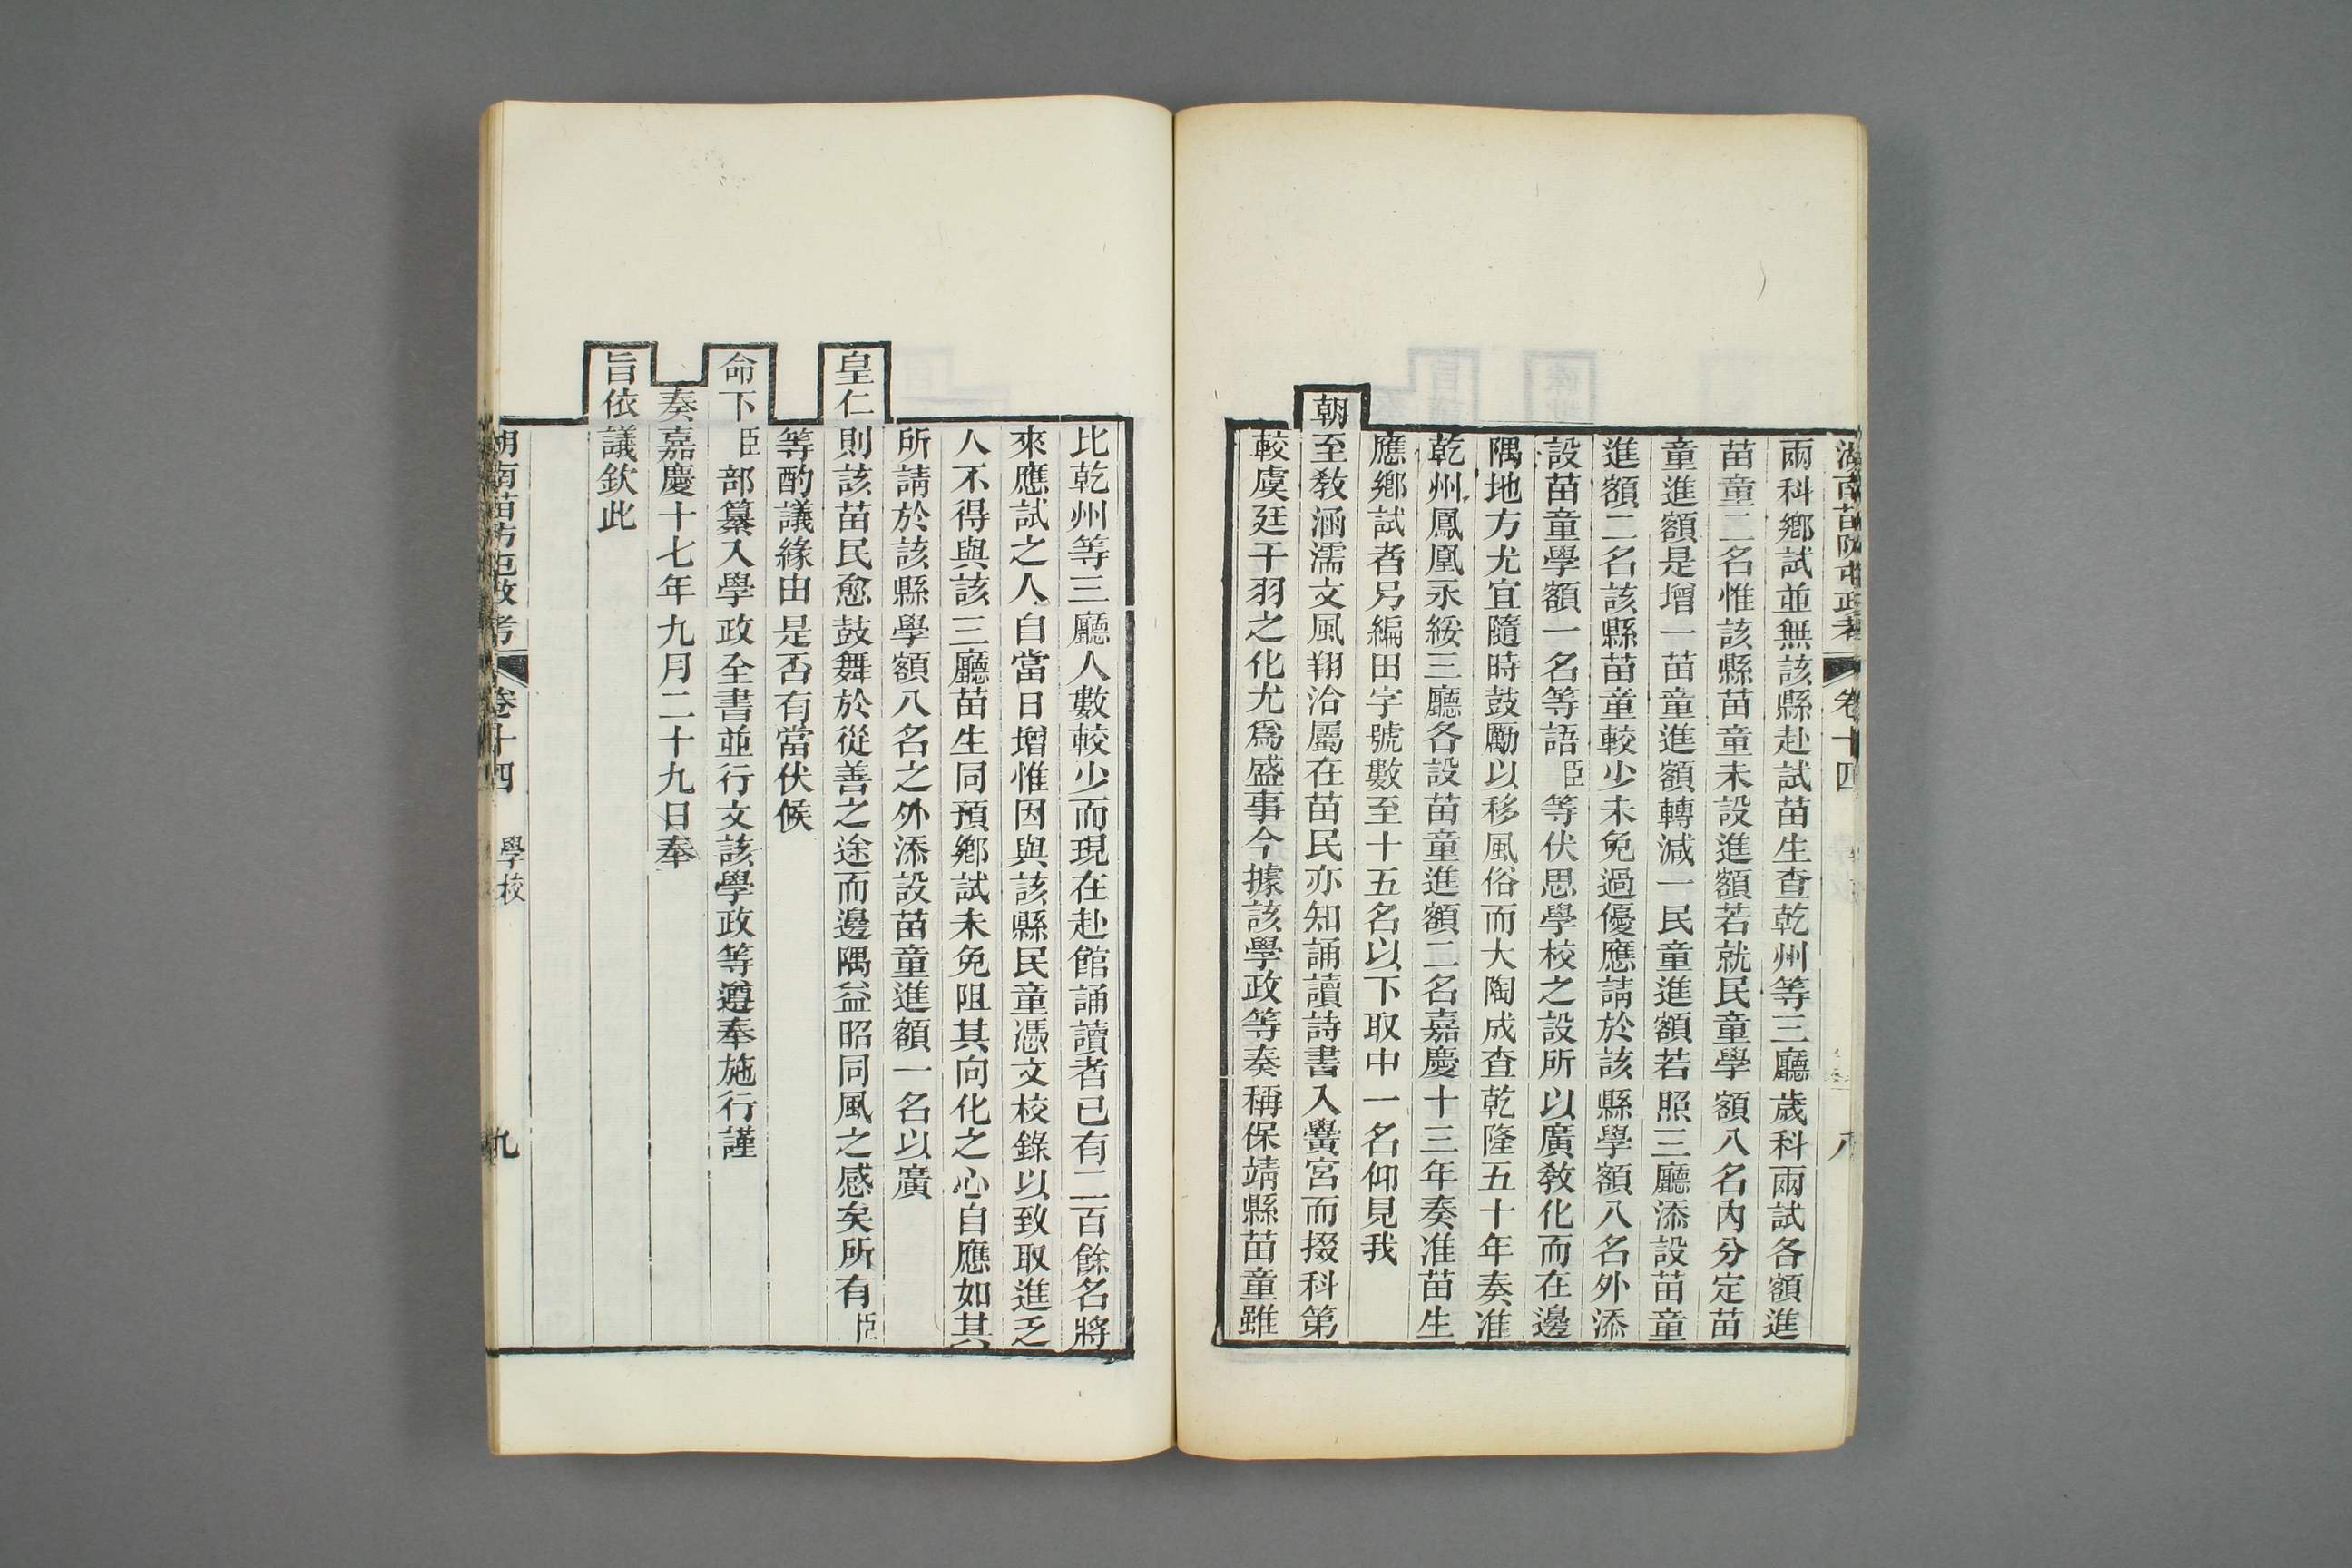 湖南苗防屯政考 卷十四 八
兩科鄉試並無該縣赴試苗生查乾州等三廳歲科兩試各額進
苗童二名惟該縣苗童未設進額若就民童學額八名內分定苗
童進額是增一苗童進額轉減一民童進額若照三廳添設苗童
進額二名該縣苗童較少未免過優應請於該縣學額八名外添
設苗童學額一名等語臣等伏思學校之設所以廣教化而在邊
隅地方尤宜隨時鼓勵以移風俗而大陶成查乾隆五十年奏准
乾州鳳凰永綏三廳各設苗童進額二名嘉慶十三年奏准苗生
應鄉試者另編田字號數至十五名以下取中一名仰見我
朝至教涵濡文風翔洽屬在苗民亦知誦讀詩書入黌宮而掇科第
較虞廷干羽之化尤為盛事今據該學政等奏稱保靖縣苗童雖
比乾州等三廳人數較少而現在赴館誦讀者已有二百餘名將
來應試之人自當日增惟因與該縣民童憑文校錄以致取進乏
人不得與該三廳苗生同預鄉試未免阻其向化之心自應如其
所請於該縣學額八名之外添設苗童進額一名以廣
皇仁則該苗民愈鼓舞於從善之途而邊隅益昭同風之感矣所有臣
等酌議緣由是否有當伏候
命下臣部纂入學政全書並行文該學政等遵奉施行謹
奏嘉慶十七年九月二十九日奉
旨依議欽此
湖南苗防屯政考 卷十四 學校 九